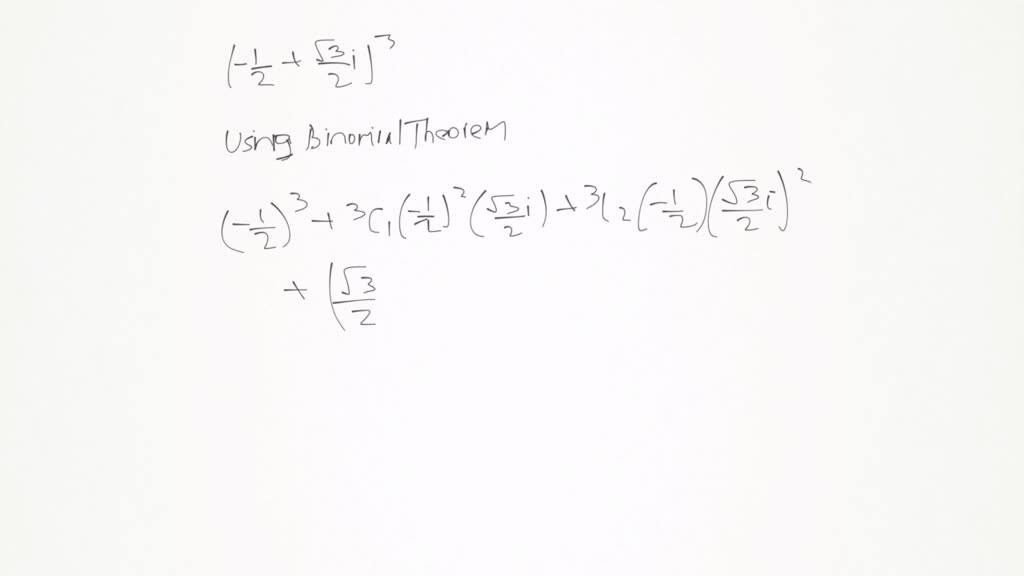 (-1/2 + √3/2 i)^3
Using Binomial Theorem
(-1/2)^3 + ³C₁(-1/2)^2(√3/2 i) + ³C₂(-1/2)(√3/2 i)^2
+ (√3/2